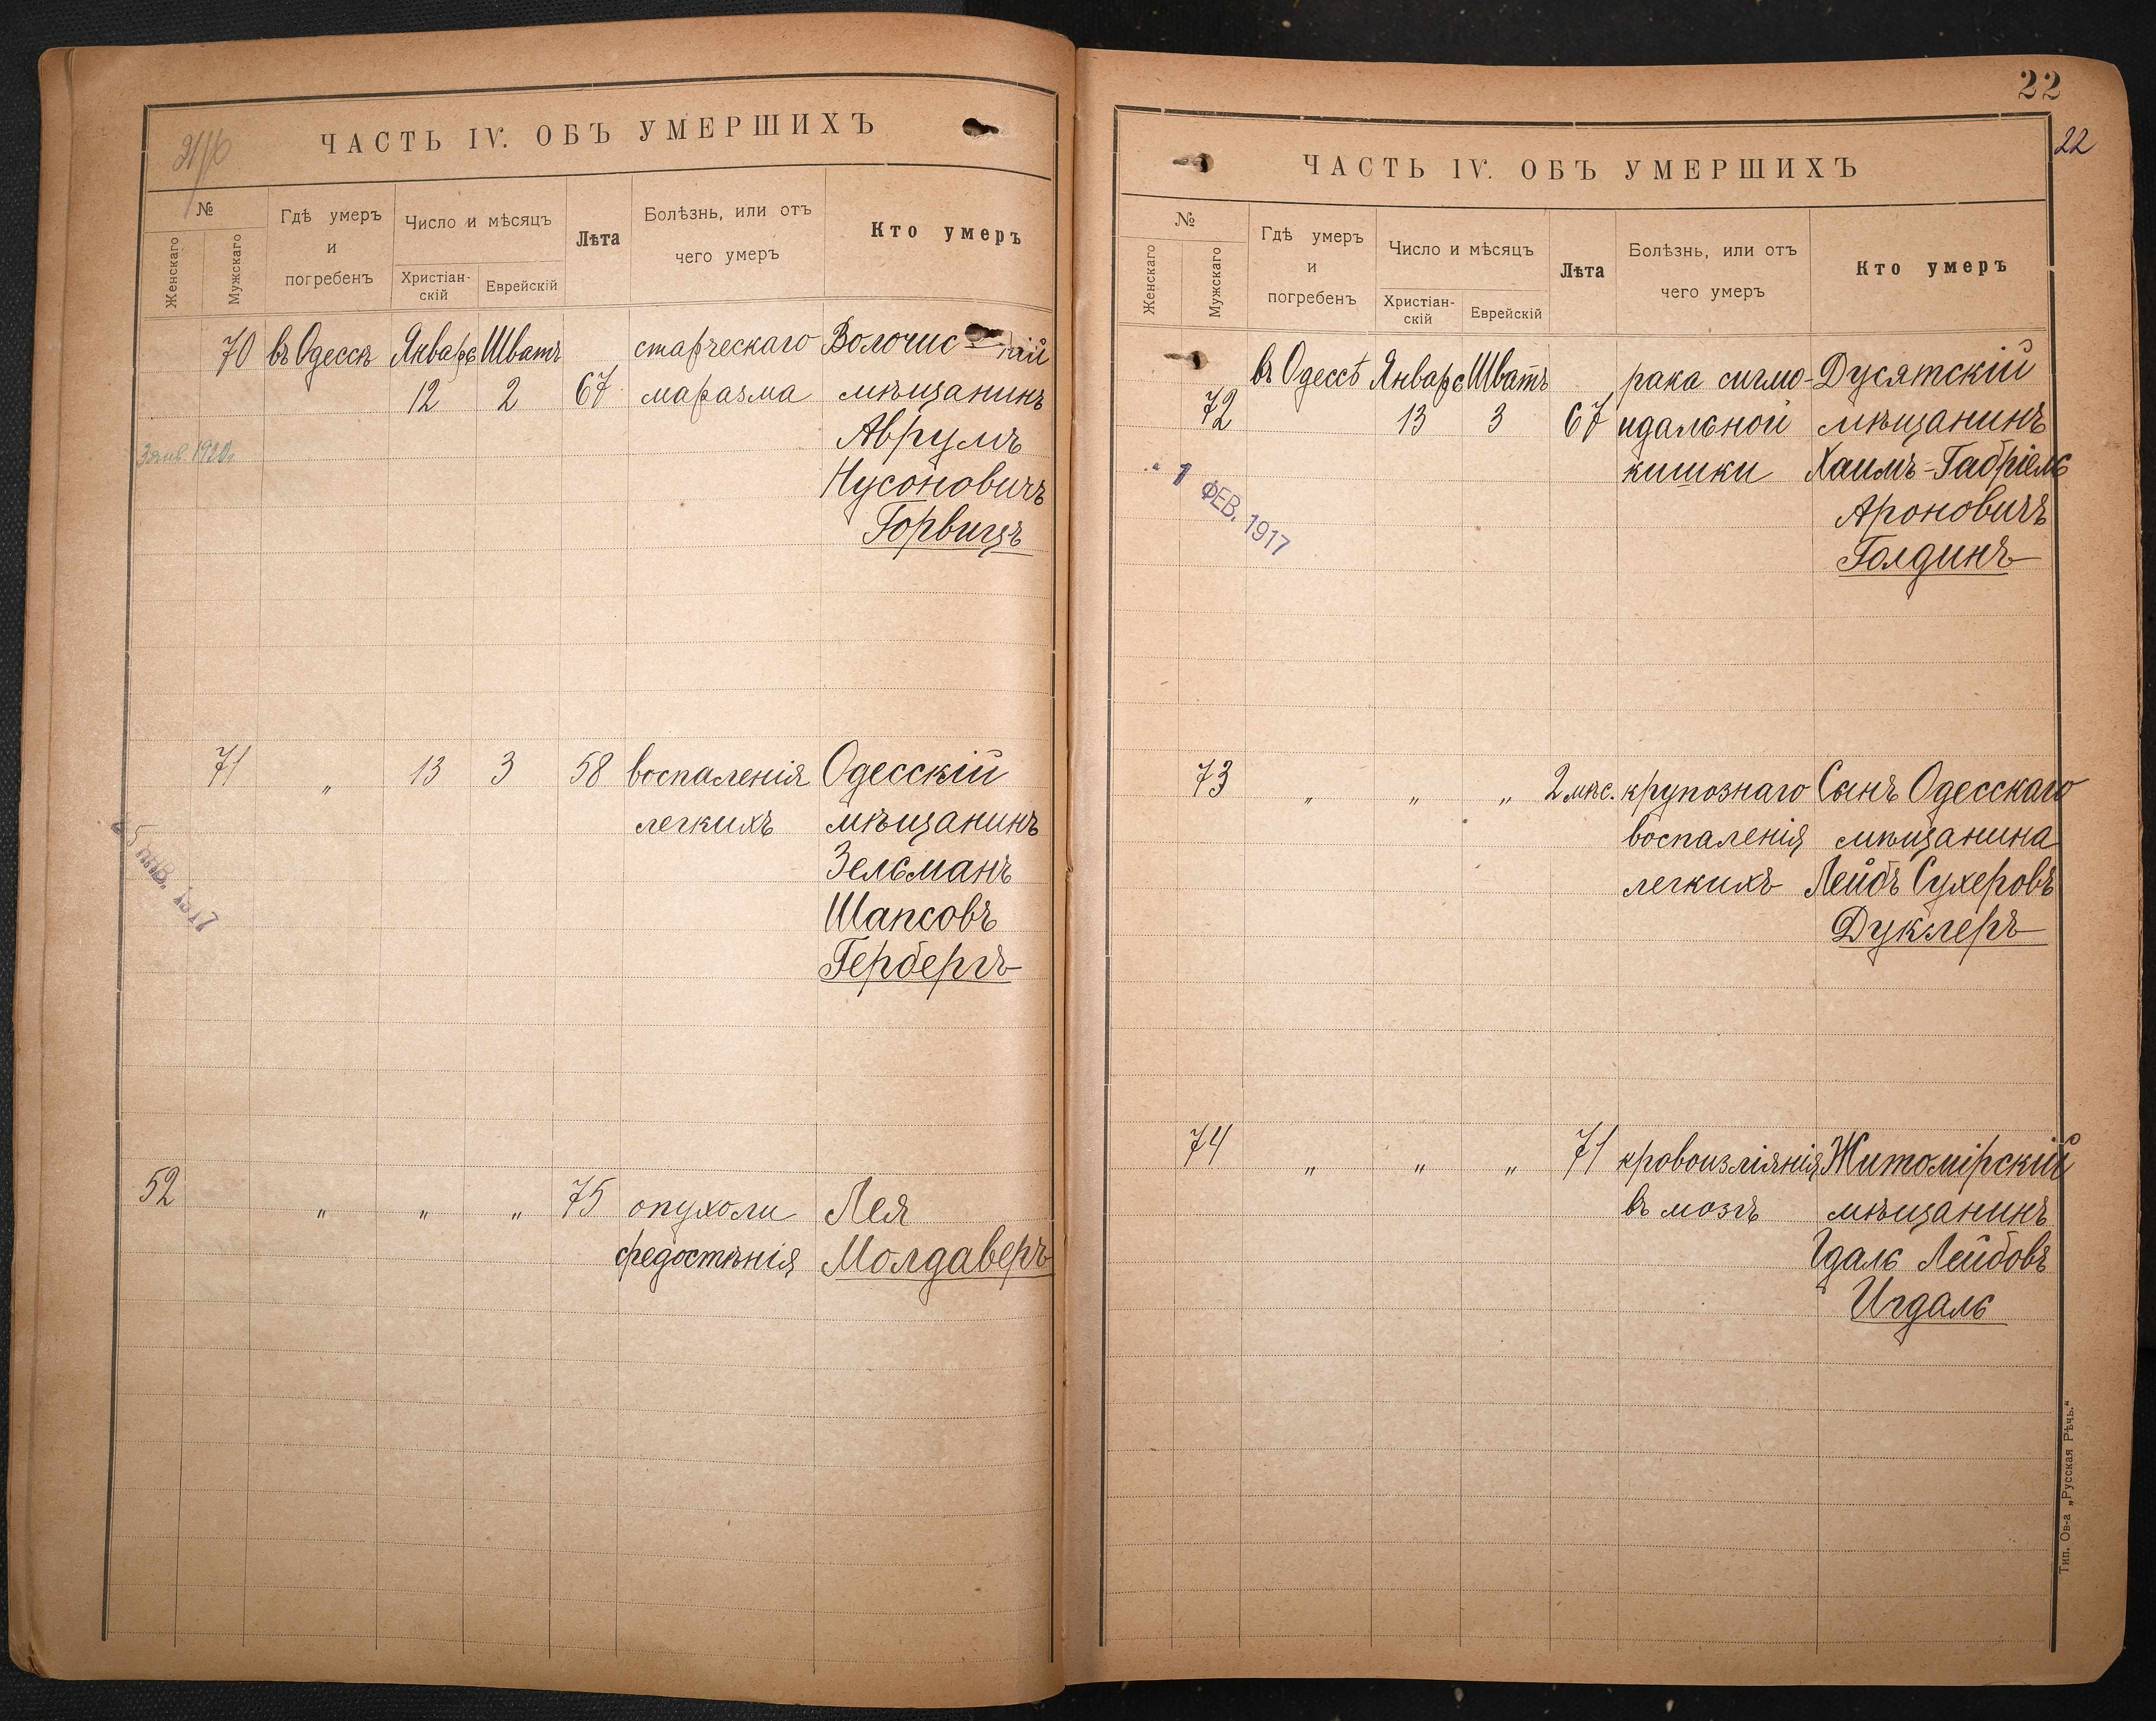 ЧАСТЬ IV. ОБЪ УМЕРШИХЪ
№
Женскаго
Мужскаго
Гдѣ умеръ
и
погребенъ
Число и мѣсяцъ
Христіан-
скій
Еврейскій
Лѣта
Болѣзнь, или отъ
чего умеръ
Кто умеръ
70 въ Одессѣ Январь Шватъ старческаго Волочис кій
12 2 67 маразма мѣщанинъ
1920г.
Аврумъ
Нусоновичъ
Горвицъ
71 " 13 3 58 воспаленія Одесскій
легкихъ мѣщанинъ
Зельманъ
Шапсовъ
Гербергъ
52 " " " 75 опухоли Лея
средостѣнія Молдаверъ
22
22
ЧАСТЬ IV. ОБЪ УМЕРШИХЪ
№
Женскаго
Мужскаго
Гдѣ умеръ
и
погребенъ
Число и мѣсяцъ
Христіан-
скій
Еврейскій
Лѣта
Болѣзнь, или отъ
чего умеръ
Кто умеръ
въ Одессѣ Январь Шватъ рака сигмо- Дусятскій
72 13 3 67 идальной мѣщанинъ
кишки Хаимъ-Габріель
1 ФЕВ. 1917
Ароновичъ
Голдинъ
73 " " " 2 мѣс. крупознаго Сынъ Одесскаго
воспаленія мѣщанина
легкихъ Лейбъ Сухеровъ
Дуклеръ
74 " " " 71 кровоизліянія Житомірскій
въ мозгъ мѣщанинъ
Гдаль Лейбовъ
Игдаль
Тип. Ов-а „Русская Рѣчь.“